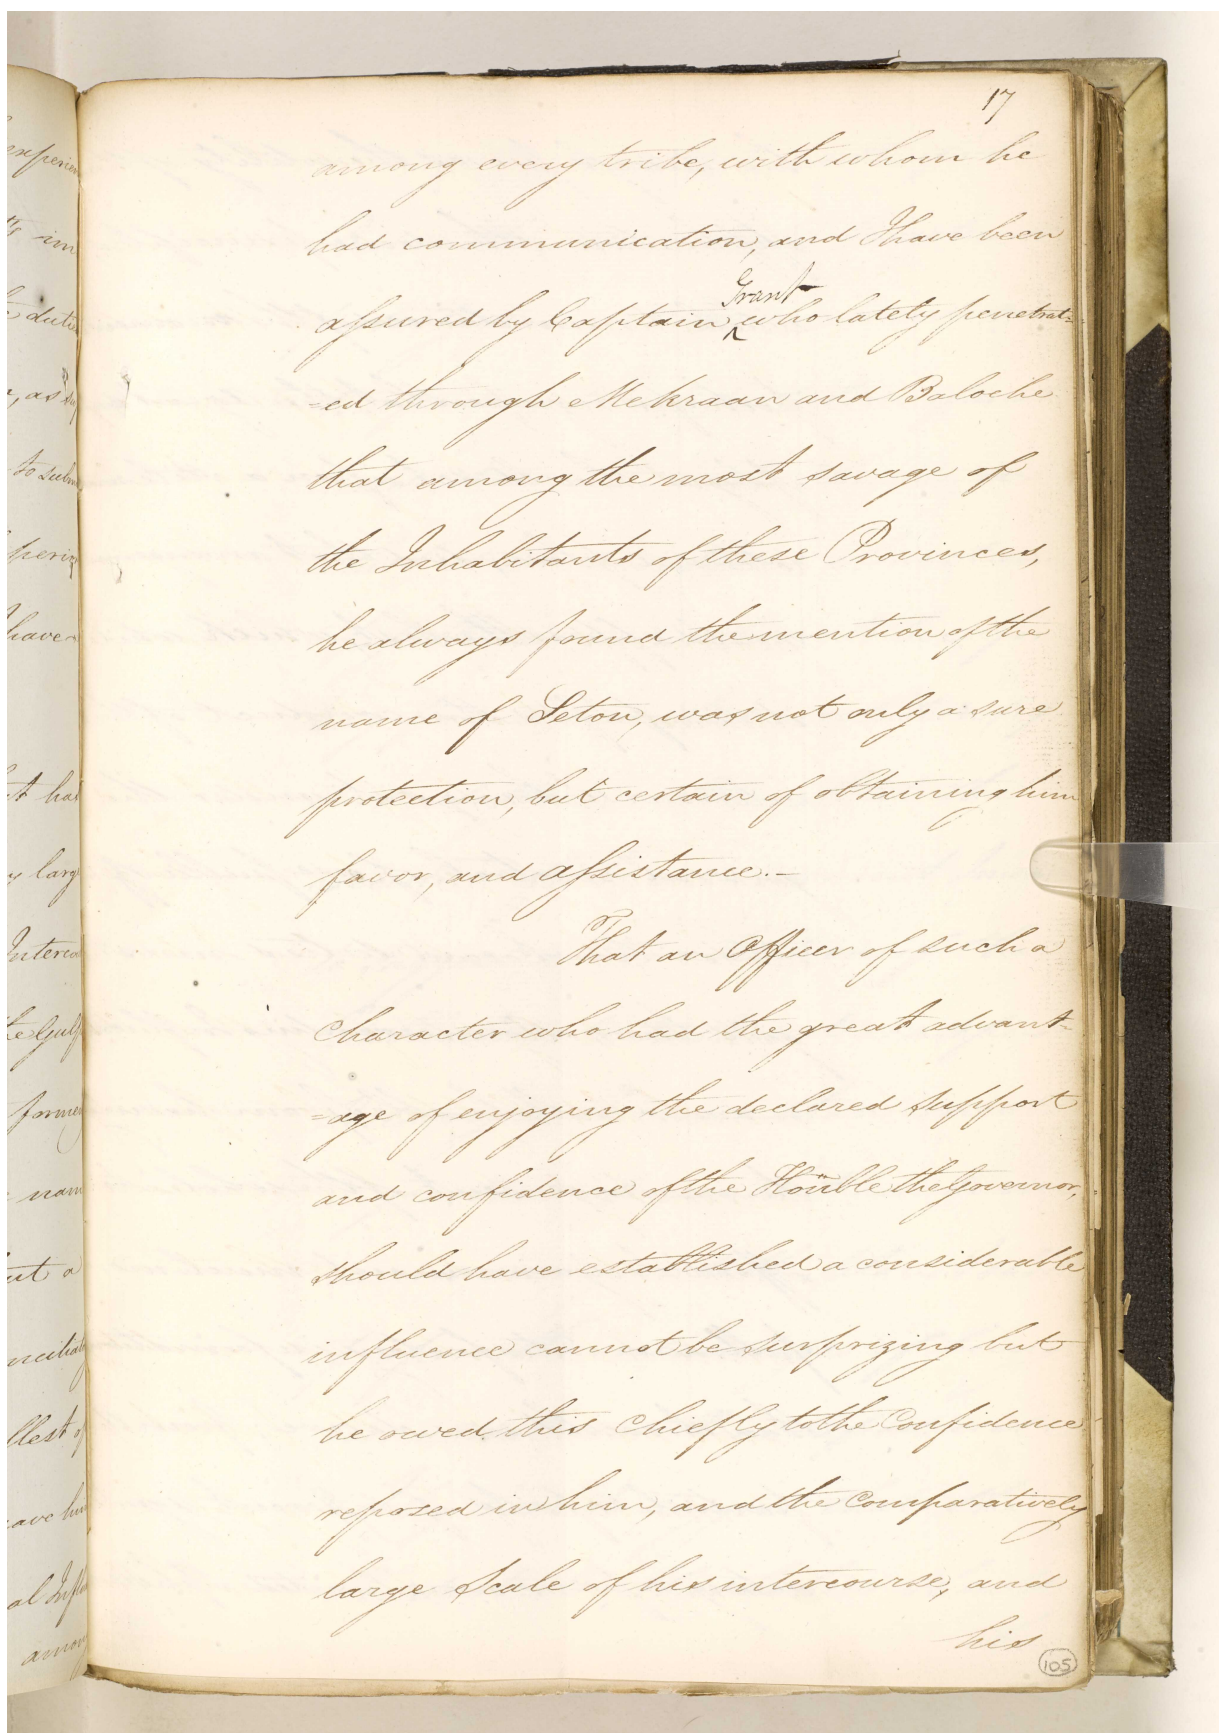 17
among every tribe, with whom he
had communication, and I have been
Grant
assured by Captain ^ who lately penetrat=
=ed through Mekraan and Baloche
that among the most savage of
the Inhabitants of these Provinces,
he always found the mention of the
name of Seton, was not only a sure
protection, but certain of obtaining him
favor, and assistance.-
That an Officer of such a
Character who had the great advant=
=age of enjoying the declared support
and confidence of the Hon̈ble the Governor,
should have established a considerable
influence cannot be surprizing but
he owed this Chiefly to the Confidence
reposed in him, and the Comparatively
large Scale of his intercourse, and
his
105